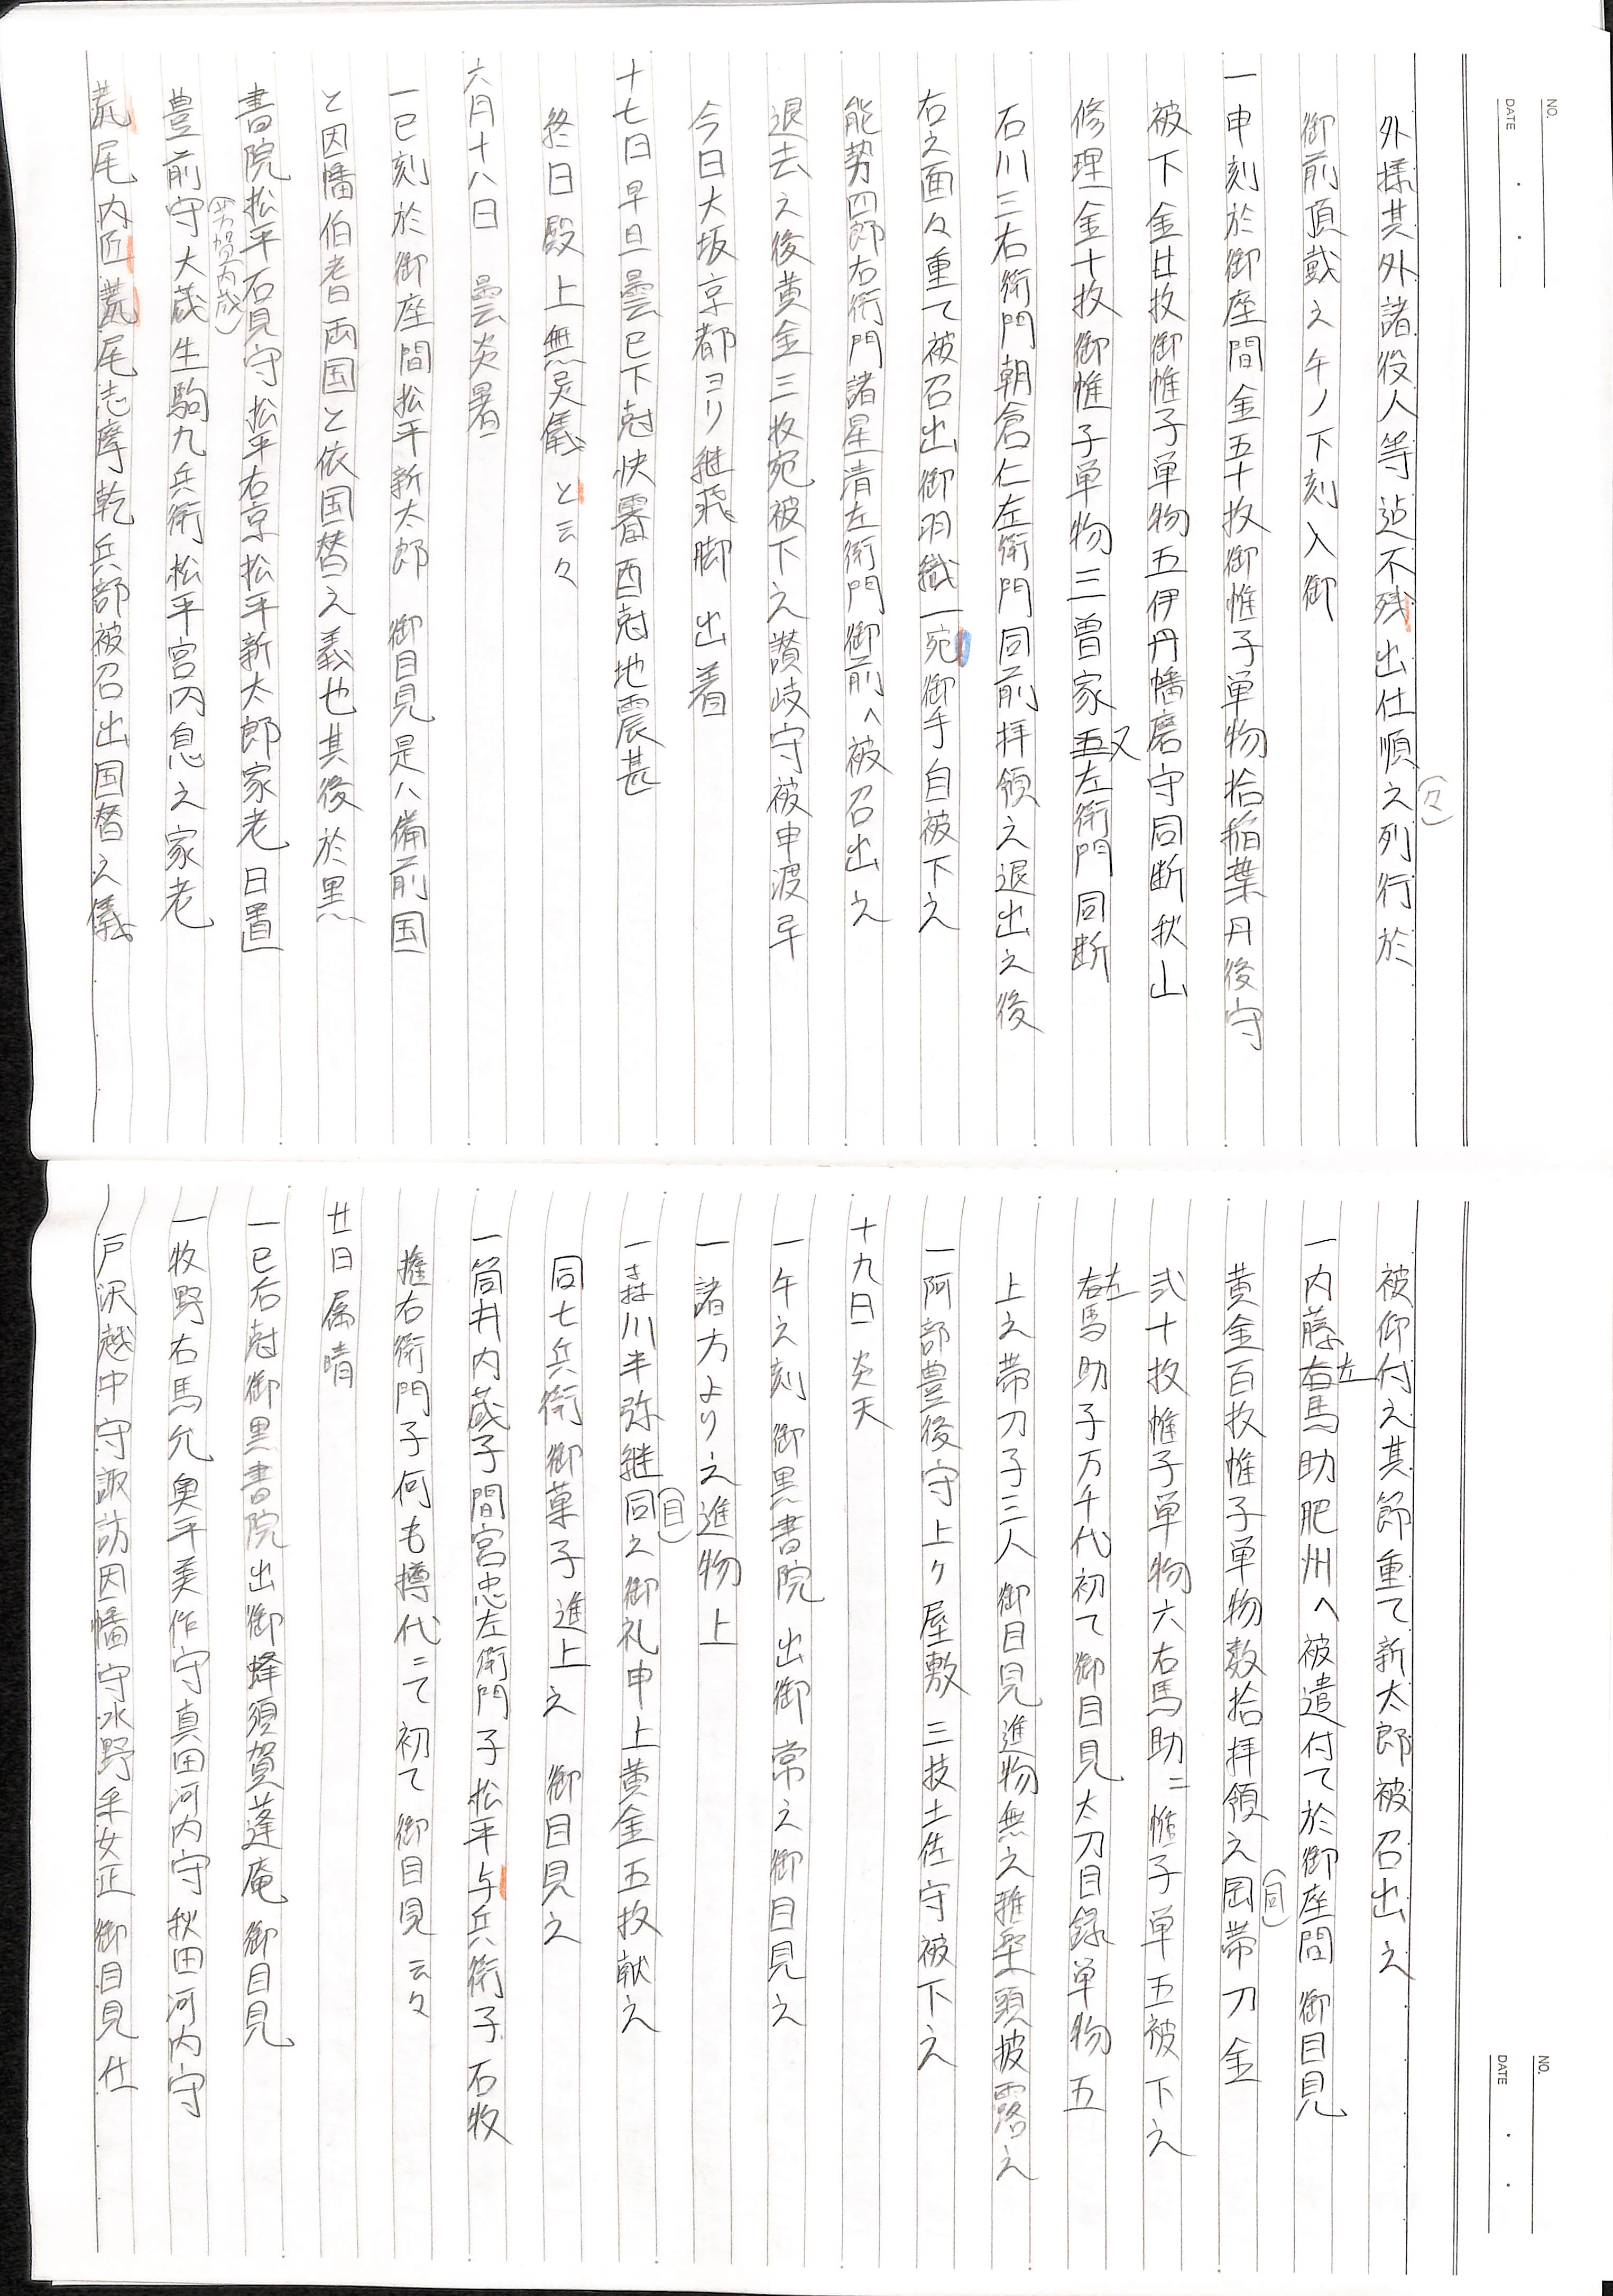 NO.
DATE
外様其外諸役人等迄不残出仕順之列行於
(々)
御前頂戴之午ノ下刻入御
一申刻於御座間金五十枚御惟子単物拾稲葉丹後守
被下金廿枚御惟子単物五伊丹幡磨守同断秋山
修理金十枚御惟子単物三曽家五左衛門同断
又
石川三右衛門朝倉仁左衛門同前拝領之退出之後
右之面々重て被召出御羽織一宛御手自被下之
能勢四郎右衛門諸星清左衛門御前へ被召出之
退去之後黄金三枚宛被下之讃岐守被申渡早
今日大坂京都ヨリ継飛脚出着
十七日早旦曇巳下尅快霽酉尅地震甚
終日殿上無異儀と云々
六月十八日 曇炎暑
一巳刻於御座間松平新太郎 御目見是ハ備前国
と因幡伯耆両国と依国替之義也其後於黒
書院松平石見守松平右京松平新太郎家老日置
豊前守大蔵生駒九兵衛松平宮内息之家老
(芳賀内蔵)
荒尾内匠荒尾志摩乾兵部被召出国替之儀
NO.
DATE
被仰付之其節重て新太郎被召出之
一内藤右馬助肥州へ被遣付て於御座間 御目見
左
黄金百枚帷子単物数拾拝領之岡帯刀金
(同)
弐十枚帷子単物六右馬助ニ惟子単五被下之
右馬助子万千代初て御目見太刀目録単物五
左
上之帯刀子三人 御目見進物無之雅楽頭披露之
一阿部豊後守上ケ屋敷三技土佐守被下之
十九日 炎天
一午之刻 御黒書院 出御 常之御目見之
一諸方より之進物上
一森川半弥継同之御礼申上黄金五枚献之
(目)
同七兵衛御菓子進上之 御目見之
一筒井内蔵子間宮忠左衛門子松平与兵衛子石牧
権右衛門子何も樽代ニて初て御目見云々
廿日属晴
一巳后尅御黒書院出御蜂須賀蓬庵 御目見
一牧野右馬允奥平美作守真田河内守秋田河内守
戸沢越中守諏訪因幡守水野采女正 御目見仕